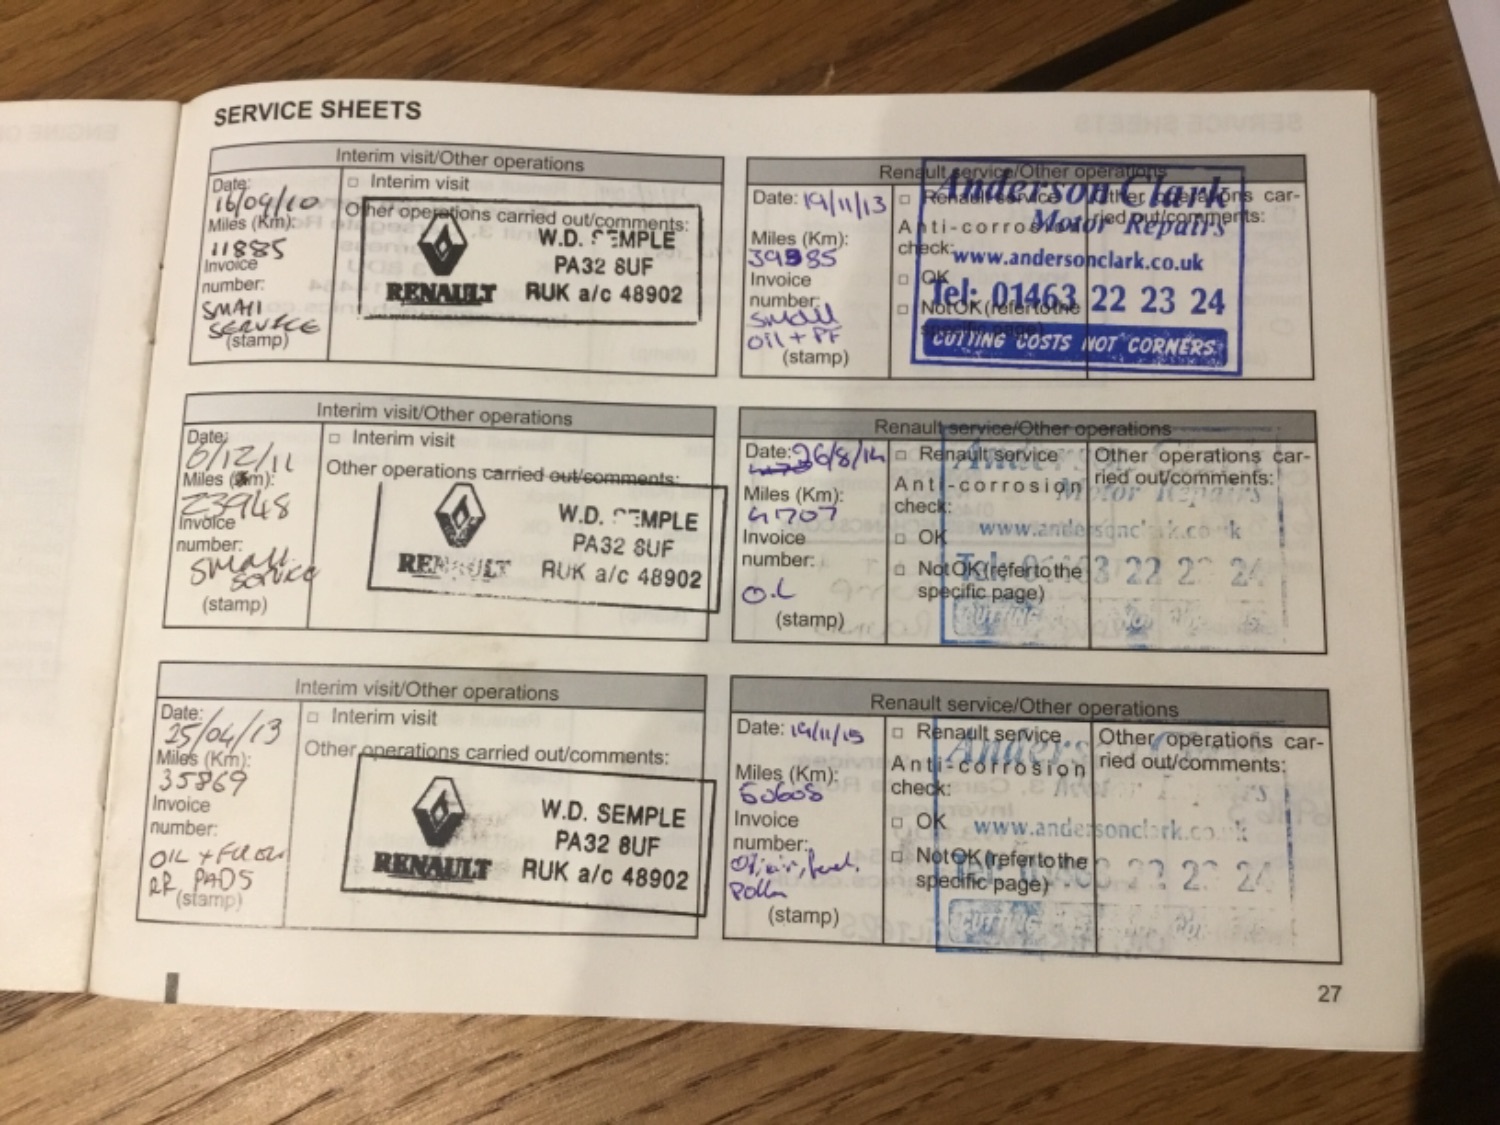 SERVICE SHEETS
Interim visit/Other operations
Date:
16/09/10
Miles (Km):
11885
Invoice
number:
SMALL
SERVICE
(stamp)
□ Interim visit
Other operations carried out/comments:
W.D. SEMPLE
PA32 8UF
RENAULT RUK a/c 48902
Interim visit/Other operations
Date:
6/12/11
Miles (Km):
23948
Invoice
number:
SMALL
SERVICE
(stamp)
□ Interim visit
Other operations carried out/comments:
W.D. SEMPLE
PA32 8UF
RENAULT RUK a/c 48902
Interim visit/Other operations
Date:
25/04/13
Miles (Km):
35869
Invoice
number:
OIL + FILTER
RR PADS
(stamp)
□ Interim visit
Other operations carried out/comments:
W.D. SEMPLE
PA32 8UF
RENAULT RUK a/c 48902
Renault service/Other operations
Date: 19/11/13
Miles (Km):
39985
Invoice
number:
small
oil + PF
(stamp)
□ Renault service
Anti-corrosion
check:
□ OK
□ Not OK (refer to the
specific page)
Other operations car-
ried out/comments:
Anderson Clark
Motor Repairs
www.andersonclark.co.uk
Tel: 01463 22 23 24
CUTTING COSTS NOT CORNERS
Renault service/Other operations
Date: 26/8/14
Miles (Km):
47707
Invoice
number:
OIL
(stamp)
□ Renault service
Anti-corrosion
check:
□ OK
□ Not OK (refer to the
specific page)
Other operations car-
ried out/comments:
Anderson Clark
Motor Repairs
www.andersonclark.co.uk
Tel: 01463 22 23 24
CUTTING
Renault service/Other operations
Date: 19/11/15
Miles (Km):
60608
Invoice
number:
Oil, air, fuel,
Pollen
(stamp)
□ Renault service
Anti-corrosion
check:
□ OK
□ Not OK (refer to the
specific page)
Other operations car-
ried out/comments:
Anderson Clark
Motor Repairs
www.andersonclark.co.uk
Tel: 01463 22 23 24
CUTTING
27